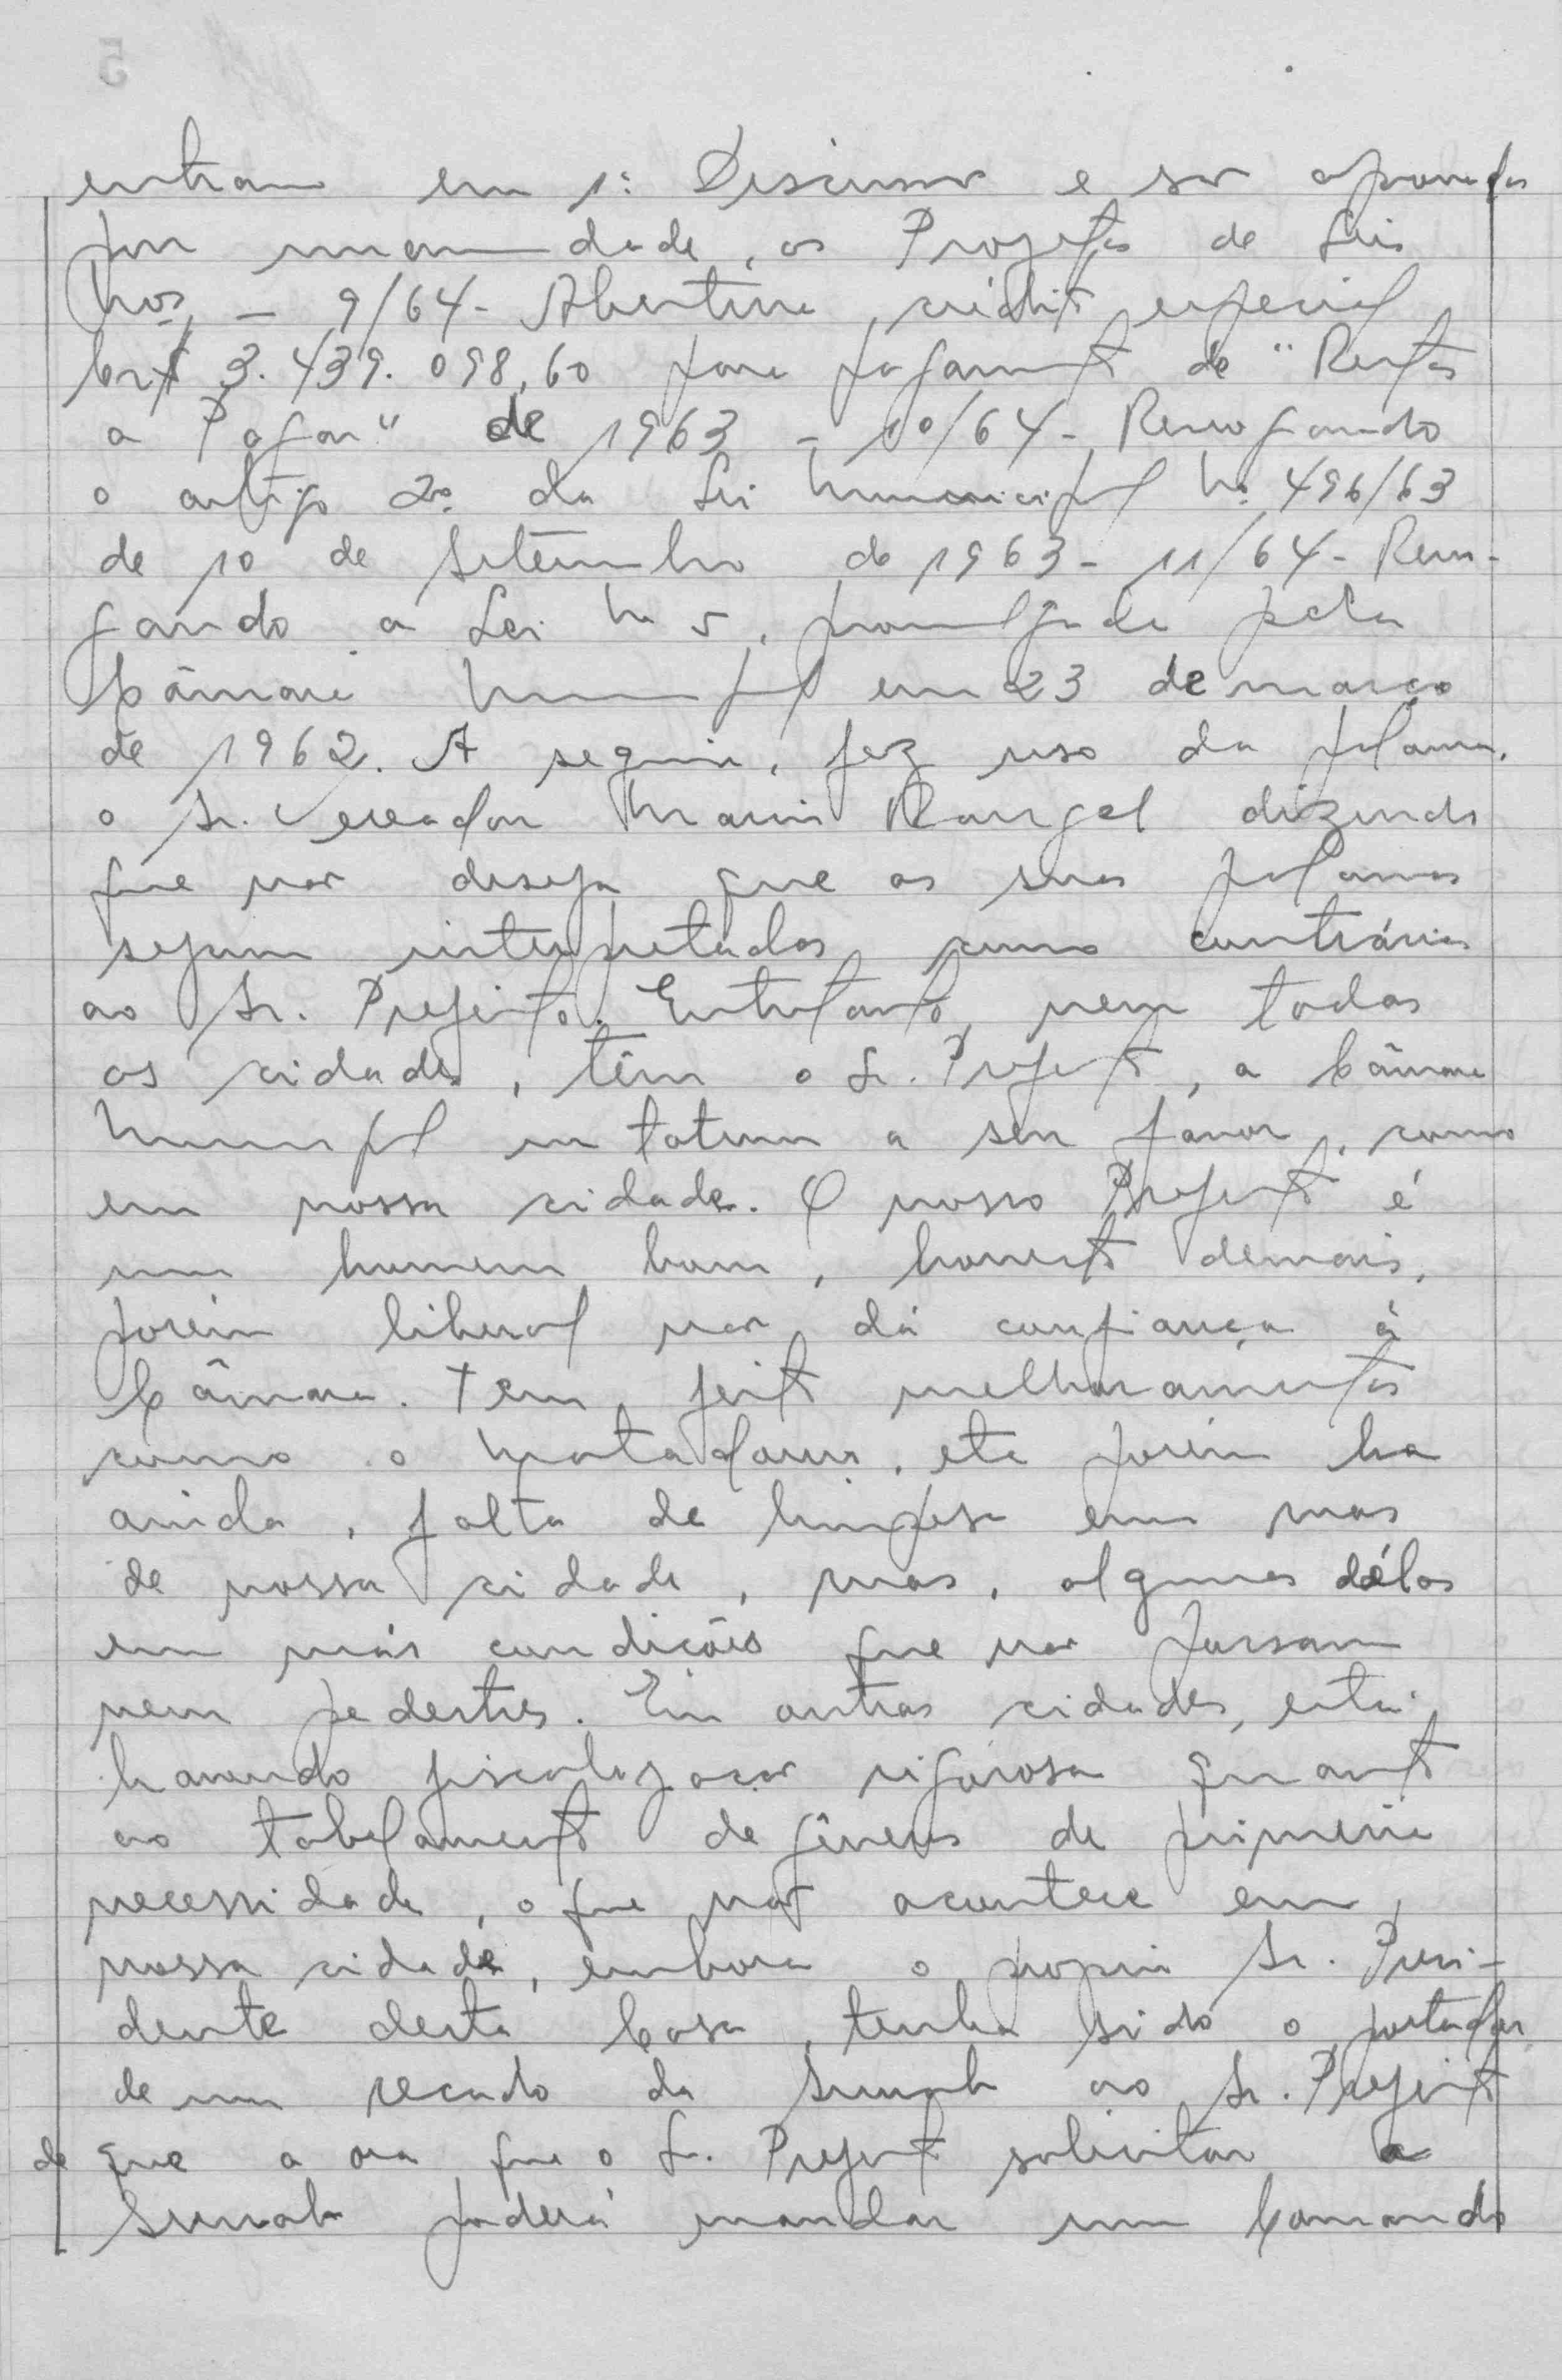 entram em 1ª Discussão e são aprovados
por unanimidade, os Projetos de Leis
Nos, – 9/64 - Abertura, crédito especial
Cr$ 3.439.098,60 para pagamento de "Restos
a Pagar" de 1963 - 10/64 - Revogando
o artigo 2º da Lei Municipal Nº 496/63
de 10 de Setembro de 1963 - 11/64 - Revo-
gando a Lei Nº 5, promulgada pela
Câmara Municipal em 23 de março
de 1962. A seguir, fez uso da palavra,
o Sr. Vereador Mario Rangel dizendo
que não deseja que as suas palavras
sejam interpretadas como contrárias
ao Sr. Prefeito. Entretanto, nem todas
as cidades, têm o Sr. Prefeito, a Câmara
Municipal in totum a seu favor, como
em nossa cidade. O nosso Prefeito é
um homem bom, honesto demais,
porém liberal não dá confiança á
Câmara. Tem feito melhoramentos
como o Matadouro, etc porém ha
ainda, falta de limpesa em ruas
de nossa cidade, ruas, algumas délas
em más condições que não passam
nem pedestres. Em outras cidades, está
havendo fiscalização rigorosa quanto
ao tabelamento de gêneros de primeira
necessidade, o que não acontece em
nossa cidade, embora o proprio Sr. Presi-
dente desta Casa, tenha sido o portador
de um recado da Sunab ao Sr. Prefeito
de que a ora que o Sr. Prefeito solicitar a
Sunab poderá mandar um Comando